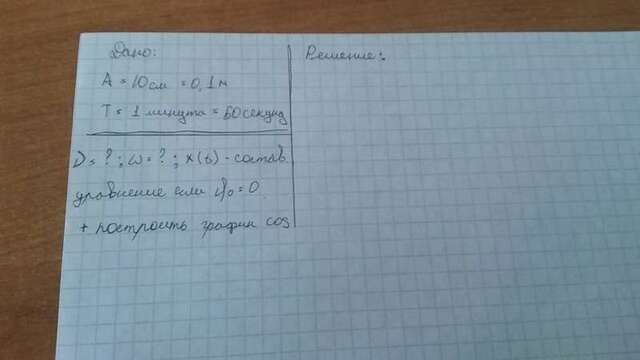 Дано:
Решение:
A = 10 см = 0,1 м
T = 1 минута = 60 секунд
ν = ? ; ω = ? ; x(t) - состав.
уравнение если φ₀ = 0
+ построить график cos